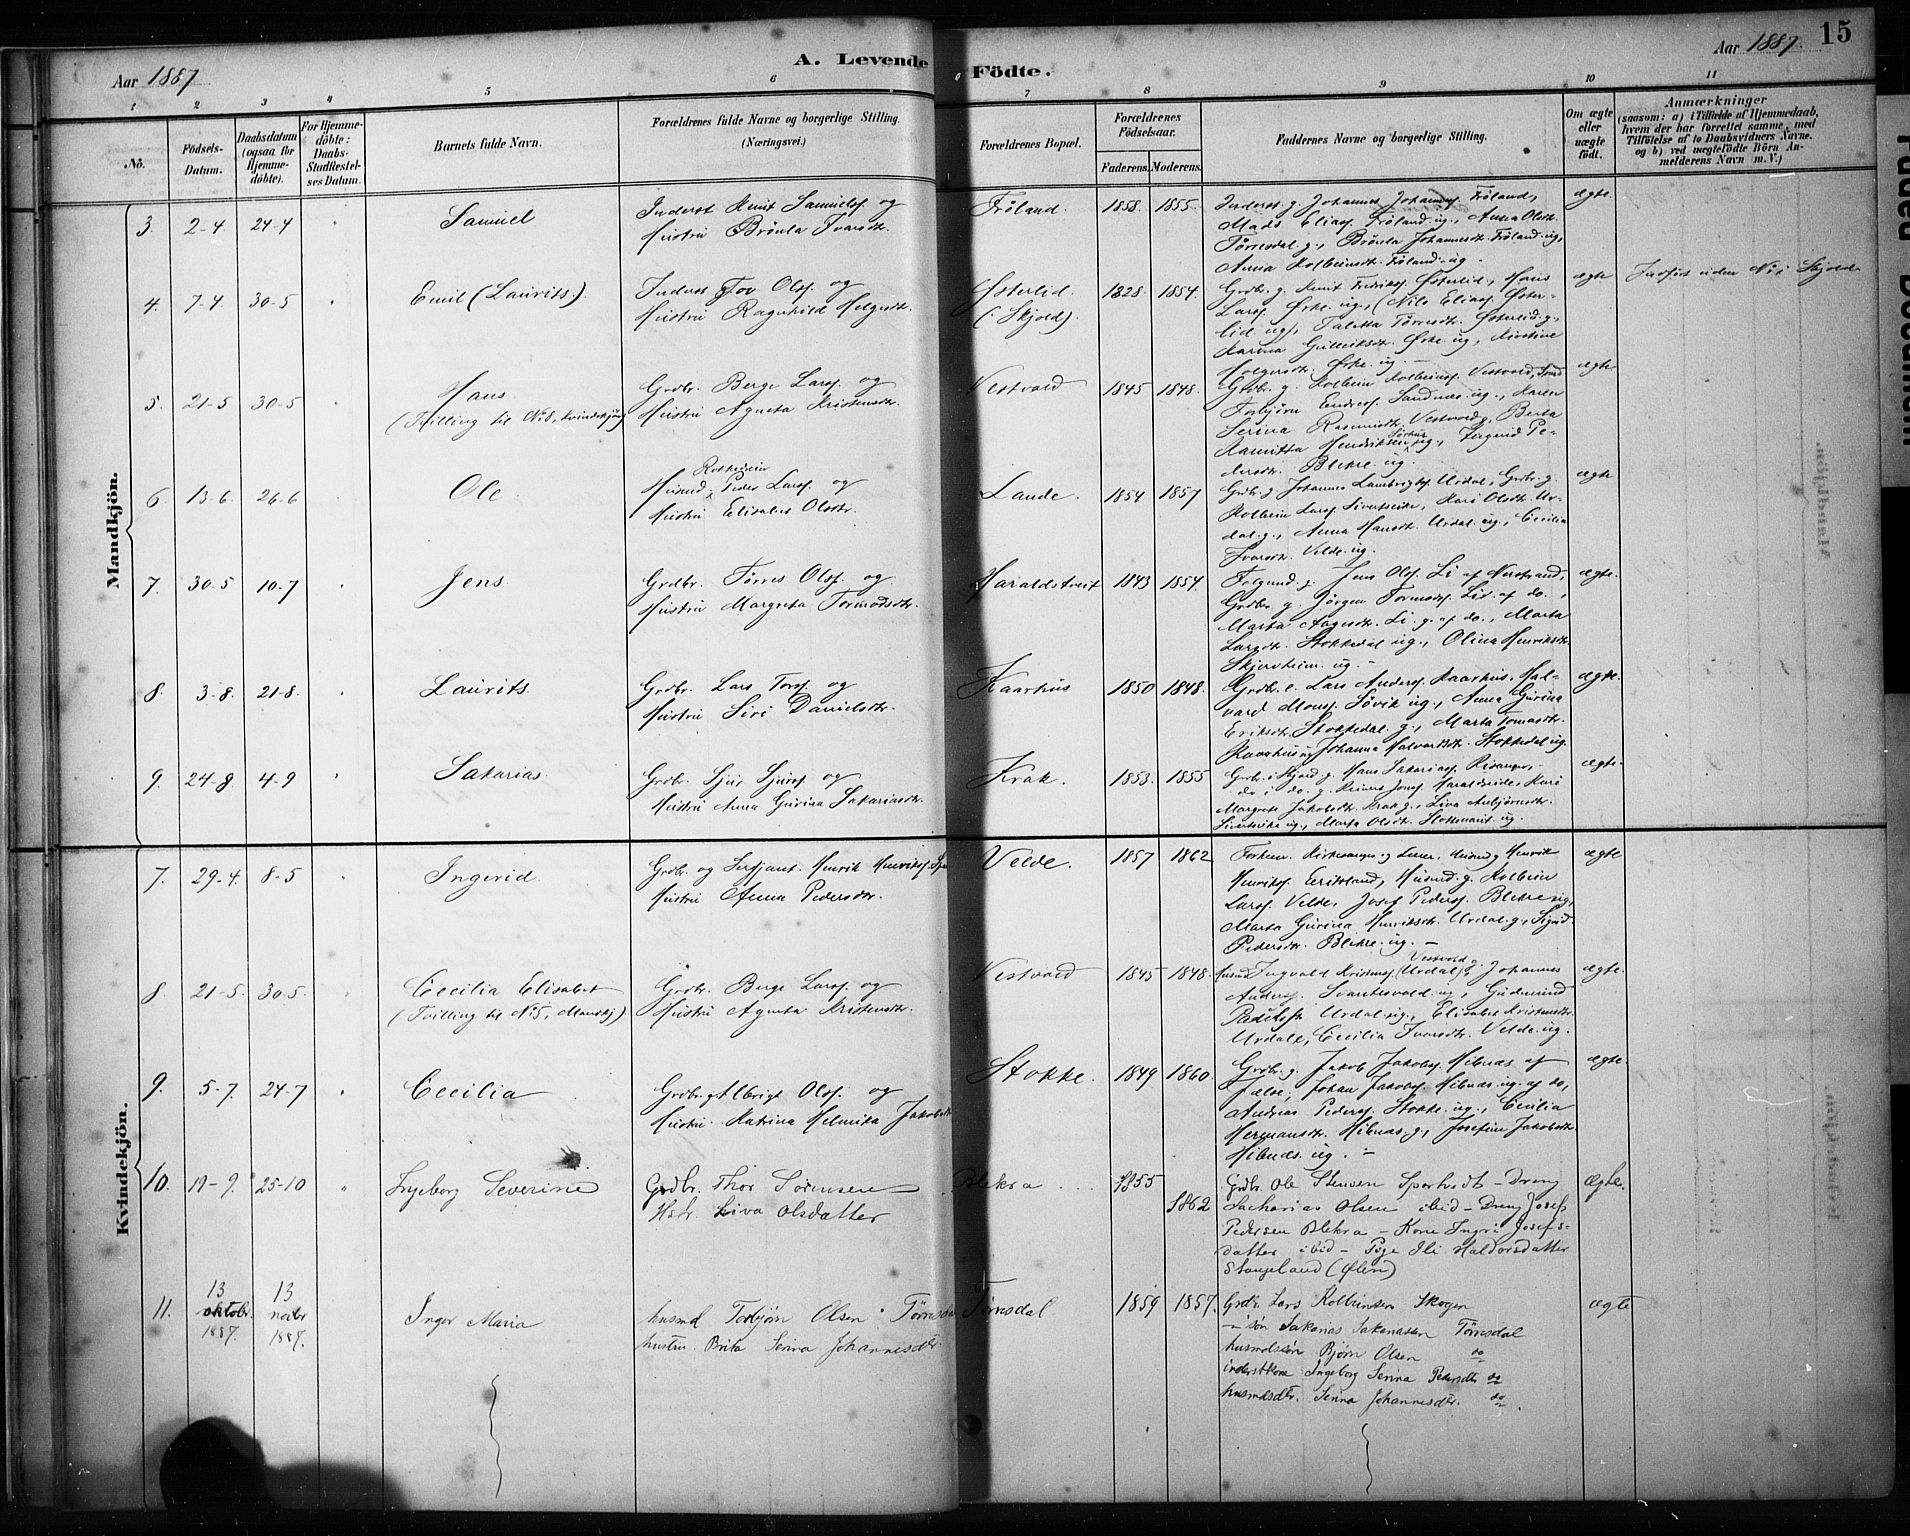 Aar 1887
A. Levende Födte.
Aar 1887. 15
1 2 3 4 5 6 7 8 9 10 11
No.
Födsels-Datum.
Daabsdatum (ogsaa for Hjemme-döbte).
For Hjemme-döbte: Daabs-Stadfæstel-ses Datum.
Barnets fulde Navn.
Forældrenes fulde Navne og borgerlige Stilling.
(Næringsvei.)
Forældrenes Bopæl.
Forældrenes Födselsaar.
Faderens. Moderens.
Faddernes Navne og borgerlige Stilling.
Om ægte eller uægte födt.
Anmærkninger
(saasom: a) i Tilfælde af Hjemmedaab,
hvem der har forrettet samme, med
Tilföielse af to Daabsvidners Navne.
og b) ved uægtefödte Börn An-
melderens Navn m. V.)
Mandkjön.
3. 2-4. 24-4 Samuel
Inderst Knut Samuelsf. og
Hustru Brönla Ivarsdtr.
Fröland. 1858. 1855.
Inderst g. Johannes Johannesf Fröland,
Mads Eliasf. Fröland ug., Anna Olsdtr.
Törresdal g., Brönla Johannesdtr. Fröland ug,
Anna Kolbeinsdtr. Fröland ug.
ægte.
4. 7-4. 30-5 Emil (Laurits).
Inderst Tov Olsf. og
Hustru Ragnhild Helgesdtr.
Østerlid. (: Skjold). 1828. 1854.
Grdbr. g. Knut Fredriksf. Østerlid, Hans
Larsf Ørke ug., (Nils Eliasf. Øster-
lid ug), Taletta Törresdtr. Østerlid g.,
Karina Gulleiksdtr. Ørke ug., Kirstine
Holgersdtr. Ørke ug. -
ægte
Indført uden No. i Skjold
5. 21-5 30-5. Hans
(Tvilling til No. 8, Kvindekjön)
Grdbr. Berge Larsf. og
Hustru Agneta Kristensdtr.
Vestvold 1845 1848.
Grdbr. g. Kolbein Kolbeinsf. Vestvold,
Torbjörn Endresf. Sandnæs ug., Karen
Serina Rasmusdtr. Vestvold g., Berta
Ramitta Henriksen ug., Ingerid Pe-
dersdtr. Blikre ug.
ægte
6. 13-6. 26-6 Ole
Husmd. Peder Larsf. og
Hustru Elisabet Olsdtr.
Lande. 1854 1857
Grdbr. g. Johannes Lambregtsf. Urdal, Grdbr. g.
Kolbein Larsf. , Kari Olsdtr. Ur-
dal g., Anna Hansdtr. Urdal ug., Cecilia
Ivarsdtr. Velde. ug.
ægte
7. 30-5 10-7 Jens
Grdbr. Törres Olsf. og
Hustru Margreta Tormodsdtr.
Haraldstveit 1843 1854.
g. Jens Olsf. Li af Nerstrand,
Grdbr. g. Jörgen Tormodsf. Li af do.,
Marta Aagesdtr. Li g. af do., Marta
Larsdtr. Stokkedal ug., Olina Henriksdtr.
Skjersheim ug. -
ægte.
8. 3-8. 21-8. Laurits.
Grdbr. Lars Torsf. og
Hustru Siri Danielsdtr.
Kaarhus 1850 1848.
Grdbr. e. Lars Andersf. Kaarhus, Hal-
vard Monsf. Søvik ug., Anna Gurina
Eriksdtr. Stokkedal g., Marta Tomasdtr.
Kaarhus ug Johanna Halvardsdtr. Stokkedal ug.
ægte
9. 24-8 4-9 Sakarias.
Grdbr. Sjur Sjursf. og
Hustru Anna Gurina Sakariasdtr.
Krak. 1853. 1855
Grdbr. i Skjold g. Hans Sakariasf.
do i do. g. Reiners Jonsf. Haraldseide, Kari
Margrete Jakobsdtr. Krak g., Liva Asbjörnsdtr.
ug., Marta Olsdtr. ug.
ægte.
Kvindekjön.
7. 29-4. 8-5 Ingerid.
Grdbr. og Serjant. Henrik Henriksf.
Hustru Anna Pedersdtr.
Velde. 1857 1862
Kirkesanger og Lærer, Husmd g Henrik
Henriksf. , Husmd. g. Kolbein
Larsf. Velde, Josef Pedersf. Blikre ug,
Marta Gurina Henriksdtr. Urdal g., Sigrid
Pedersdtr. Blikre. ug. -
ægte
8. 21-5. 30-5. Cecilia Elisabet
(Tvilling til No. 5, Mandkj)
Grdbr. Berge Larsf. og
Hustru Agneta Kristensdtr.
Vestvold 1845 1848.
Husmd Ingvald Kristensf. (Urdal) Vestvold g. Johannes
Andersf. Svartesvold ug., Gudmund
Urdal ug., Elisabet Kristensdtr.
Urdal, Cecilia Ivarsdtr. Velde ug.
ægte.
9. 5-7. 24-7 Cecilia
Grdbr. g Albrigt Olsf. og
Hustru. Katrina Helmika Jakobsdtr
Stokke. 1849 1860.
Grdbr. g. Jakob Jakobsf. Hibnæs af
Jælse, Johan Jakobsf. Hibnæs. ug. af do,
Andreas Pedersf. Stokke ug., Cecilia
Hermansdtr. Hibnæs. g., Josefine Jakobsdtr
Hibnæs. ug. -
ægte.
10. 19-9. 25-10 Ingeborg Severine
Grdbr. Thor Sörensen
Hstr. Liva Olsdatter
Blekra 1855 1862
Grdbr. Ole Stensen Sporhedt - Dreng
Sacharias Olsen ibid - Dreng Josef
Pedersen Blekra - Kone Ingri Josefs-
datter ibid - Pige Eli Haldorsdatter
Stangeland (Ølen)
Ægte.
11. 13 oktober 1887. 13 novbr 1887. Inger Maria
husmd Torbjørn Olsen Tørresdal
hustru Brita Serina Johannesdtr.
Tørresdal 1859 1857.
Grdbr. Lars Kolbeinsen Skogen
- søn Sakarias Sakariasen Tørresdal
husmdssøn Bjørn Olsen do
inderstkone Ingeborg Serina Pedersdtr do
husmdsdtr. Serina Johannesdtr. do.
ægte